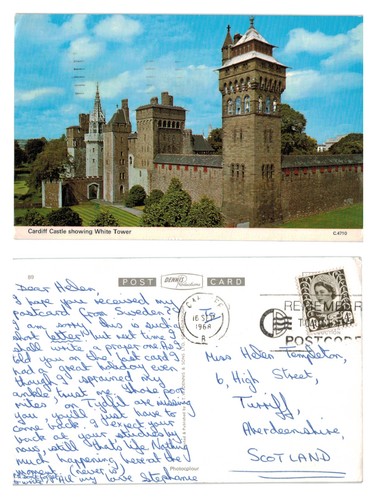 Cardiff Castle showing White Tower
C.4710
POST
DENNIS
Productions
CARD
Dear Helen,
I hope you received my
postcard from Sweden?
I am sorry this is such a
short letter but next time I
shall write a proper one. As I
told you on the last card I
had a great holiday even
though I sprained my
ankle, trust me. Those poor
mites on Tujisi are missing
you, you'll just have to
come back. I expect your
back at your studies by
now, still that's life. Nothing
much happening here at the
moment (never is)
All my love Stephanie
1968
REMEMBER
TO USE
POSTCODE
Miss Helen Templeton,
6, High Street,
Turriff,
Aberdeenshire,
SCOTLAND
Photocolour